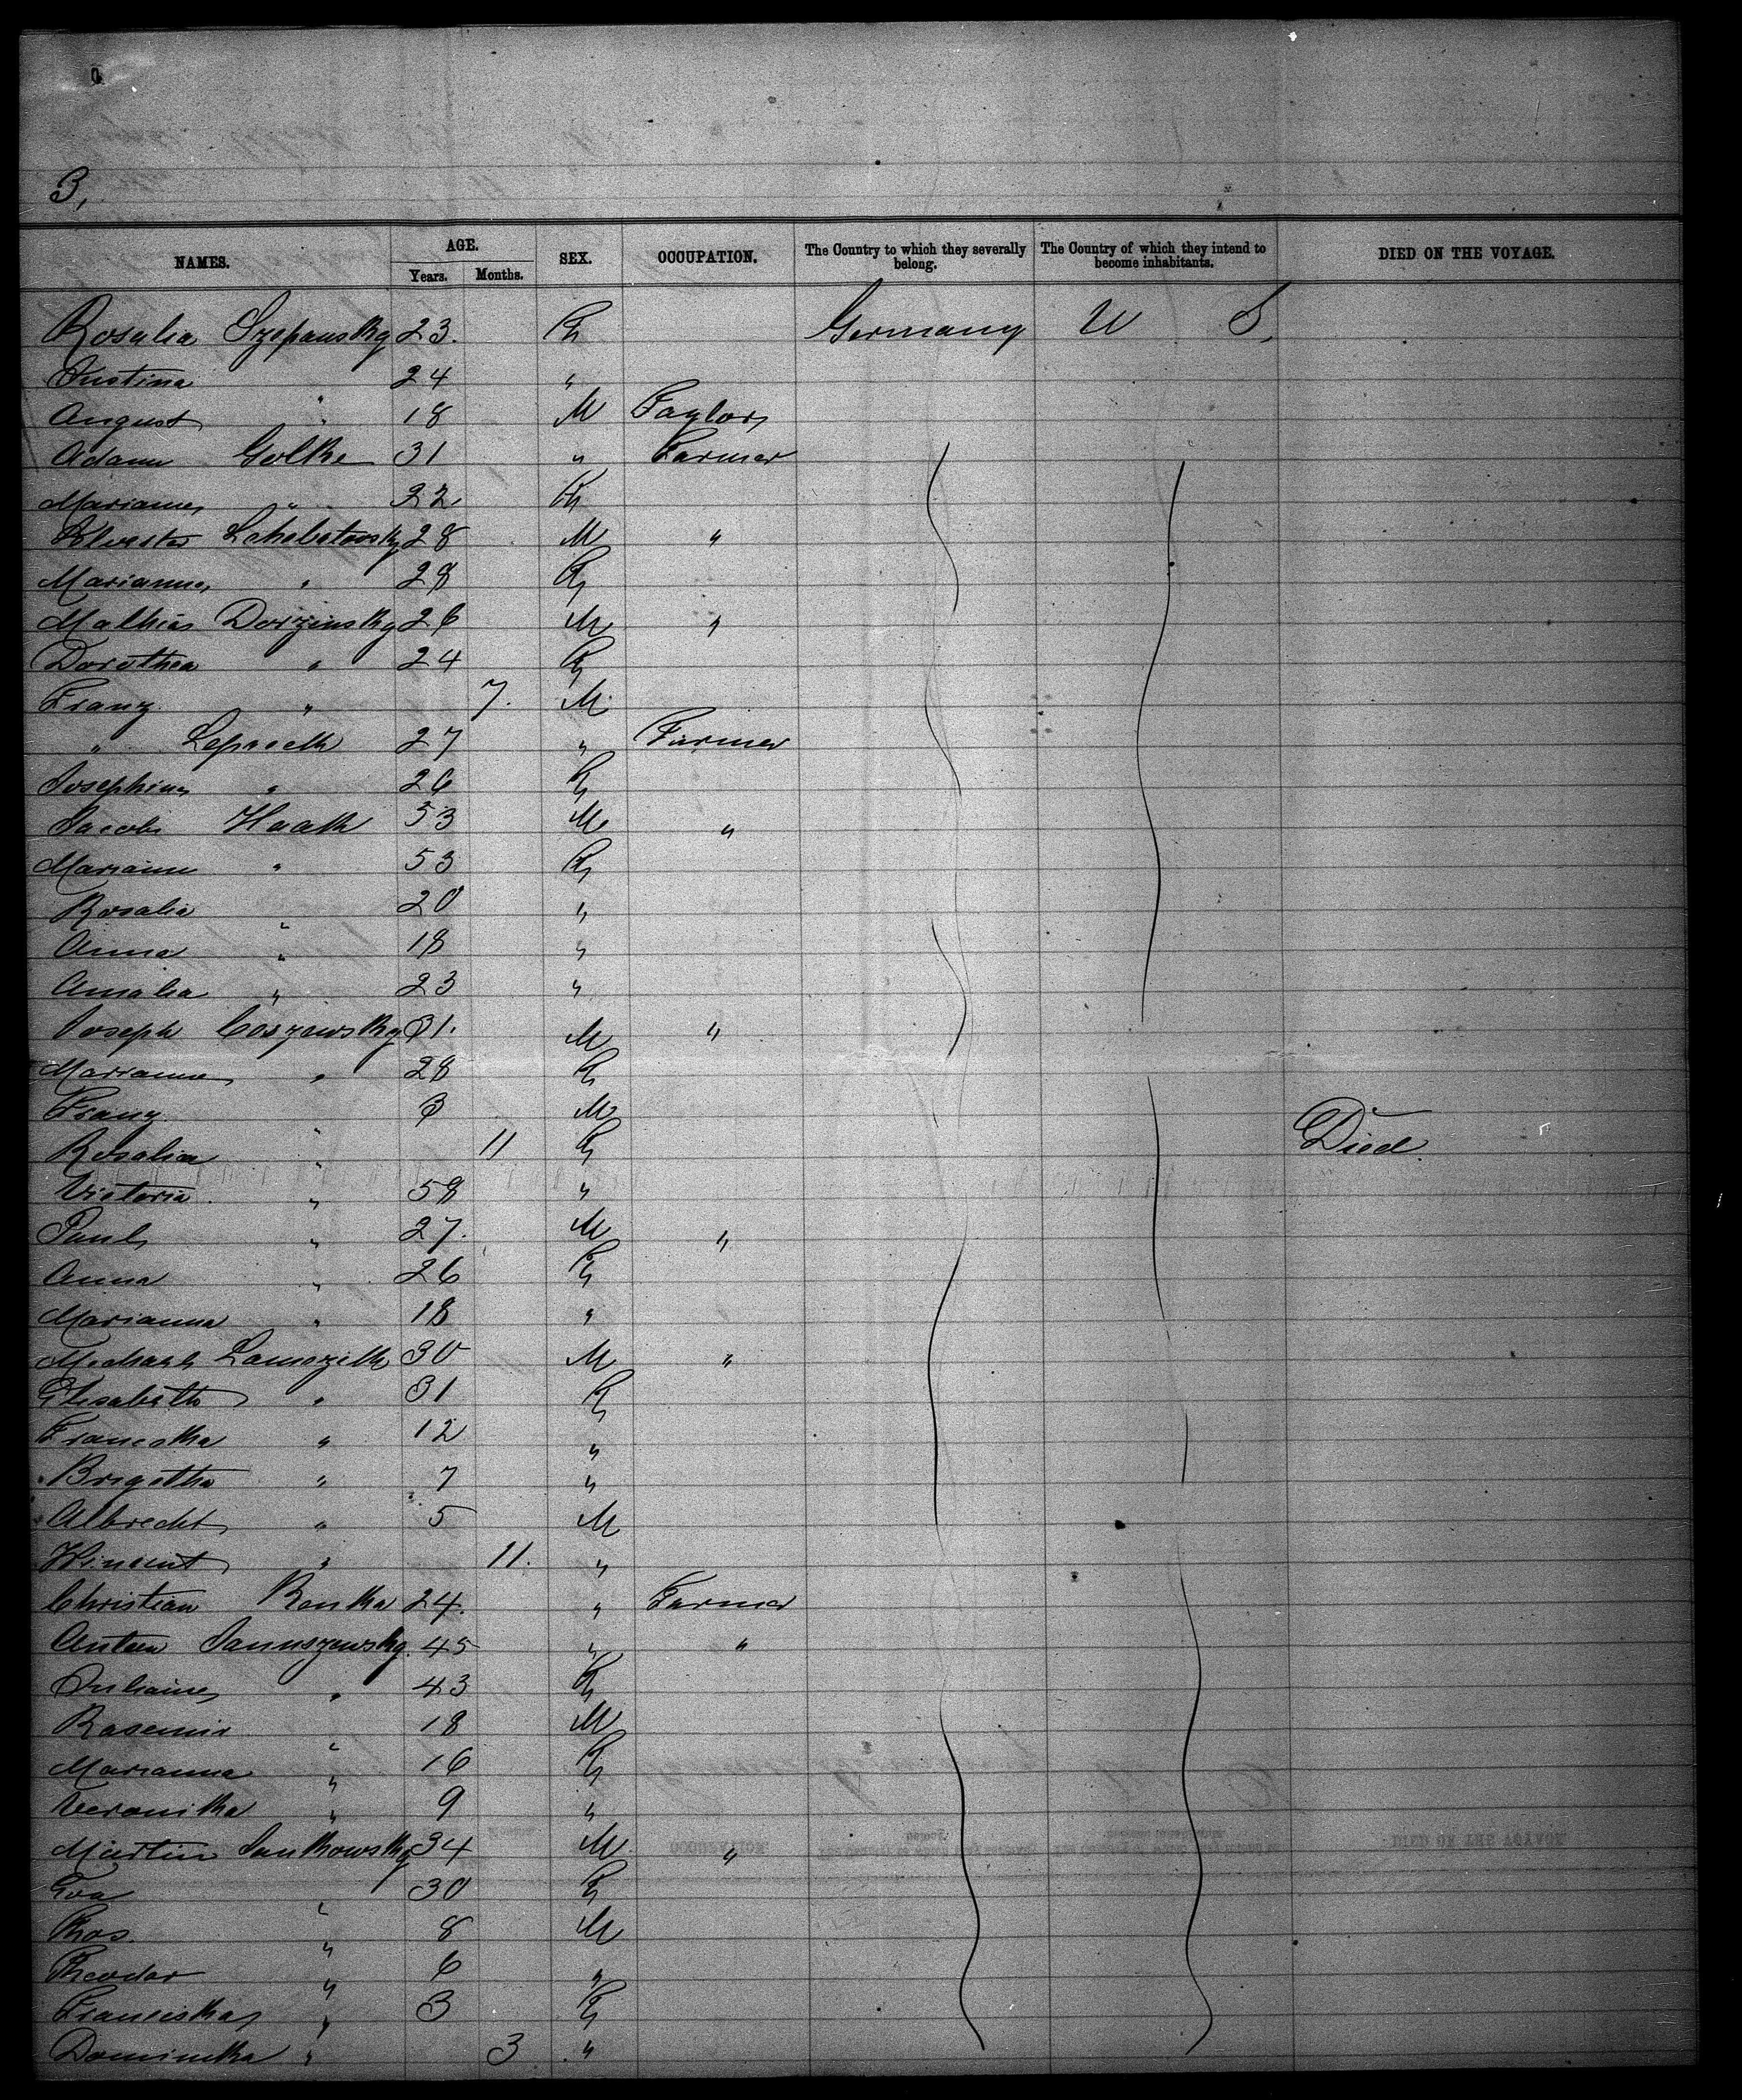 3,
NAMES. AGE. Years. Months. SEX. OCCUPATION. The Country to which they severally belong. The Country of which they intend to become inhabitants. DIED ON THE VOYAGE.
Rosalia Szepansky 23. F Germany U S.
Justina " 24 "
August " 18 M Taylor
Adam Golke 31 " Farmer
Marianne " 22 F
28 M "
Marianna " 28 F
Mathias Dorzinsky 26 M "
Dorothea " 24 F
Franz " 7. M
" 27 " Farmer
Josephine " 26 F
Jacob Haack 53 M "
Marianne " 53 F
Rosalia " 20 "
Anna " 18 "
Amalia " 23 "
Joseph Coszewsky 31. M "
Marianna " 28 F
Franz " 3 M
Rosalia " 11 F Died.
Victoria " 58 "
Paul " 27. M "
Anna " 26 F
Marianna " 18 "
Michael 30 M "
Elisabeth " 31 F
Franciska " 12 "
Brigetha " 7 "
Albrecht " 5 M
Vincent " 11. "
Christian 24. " Farmer
Anton Januszewsky. 45 " "
Juliane " 43 F
Kasemir " 18 M
Marianna " 16 F
Veronika " 9 "
Martin Jankowsky 34 M "
Eva " 30 F
" 8 M
Theodor " 6 "
Franciska " 3 F
Dominika " 3 "